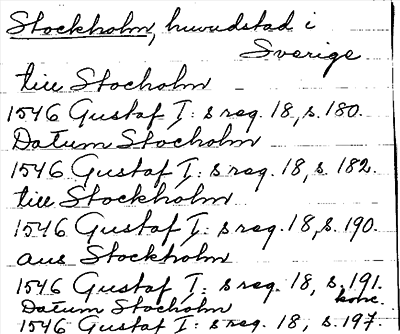 Stockholm, huvudstad i
Sverige
till Stocholm
1546 Gustaf I: s reg. 18, s. 180.
Datum Stocholm
1546 Gustaf I: s reg. 18, s. 182.
till Stockholm
1546 Gustaf I: s reg. 18, s. 190.
aus Stockholm
1546 Gustaf I: s reg. 18, s. 191.
konc.
Datum Stocholm
1546 Gustaf I: s reg. 18, s. 197.